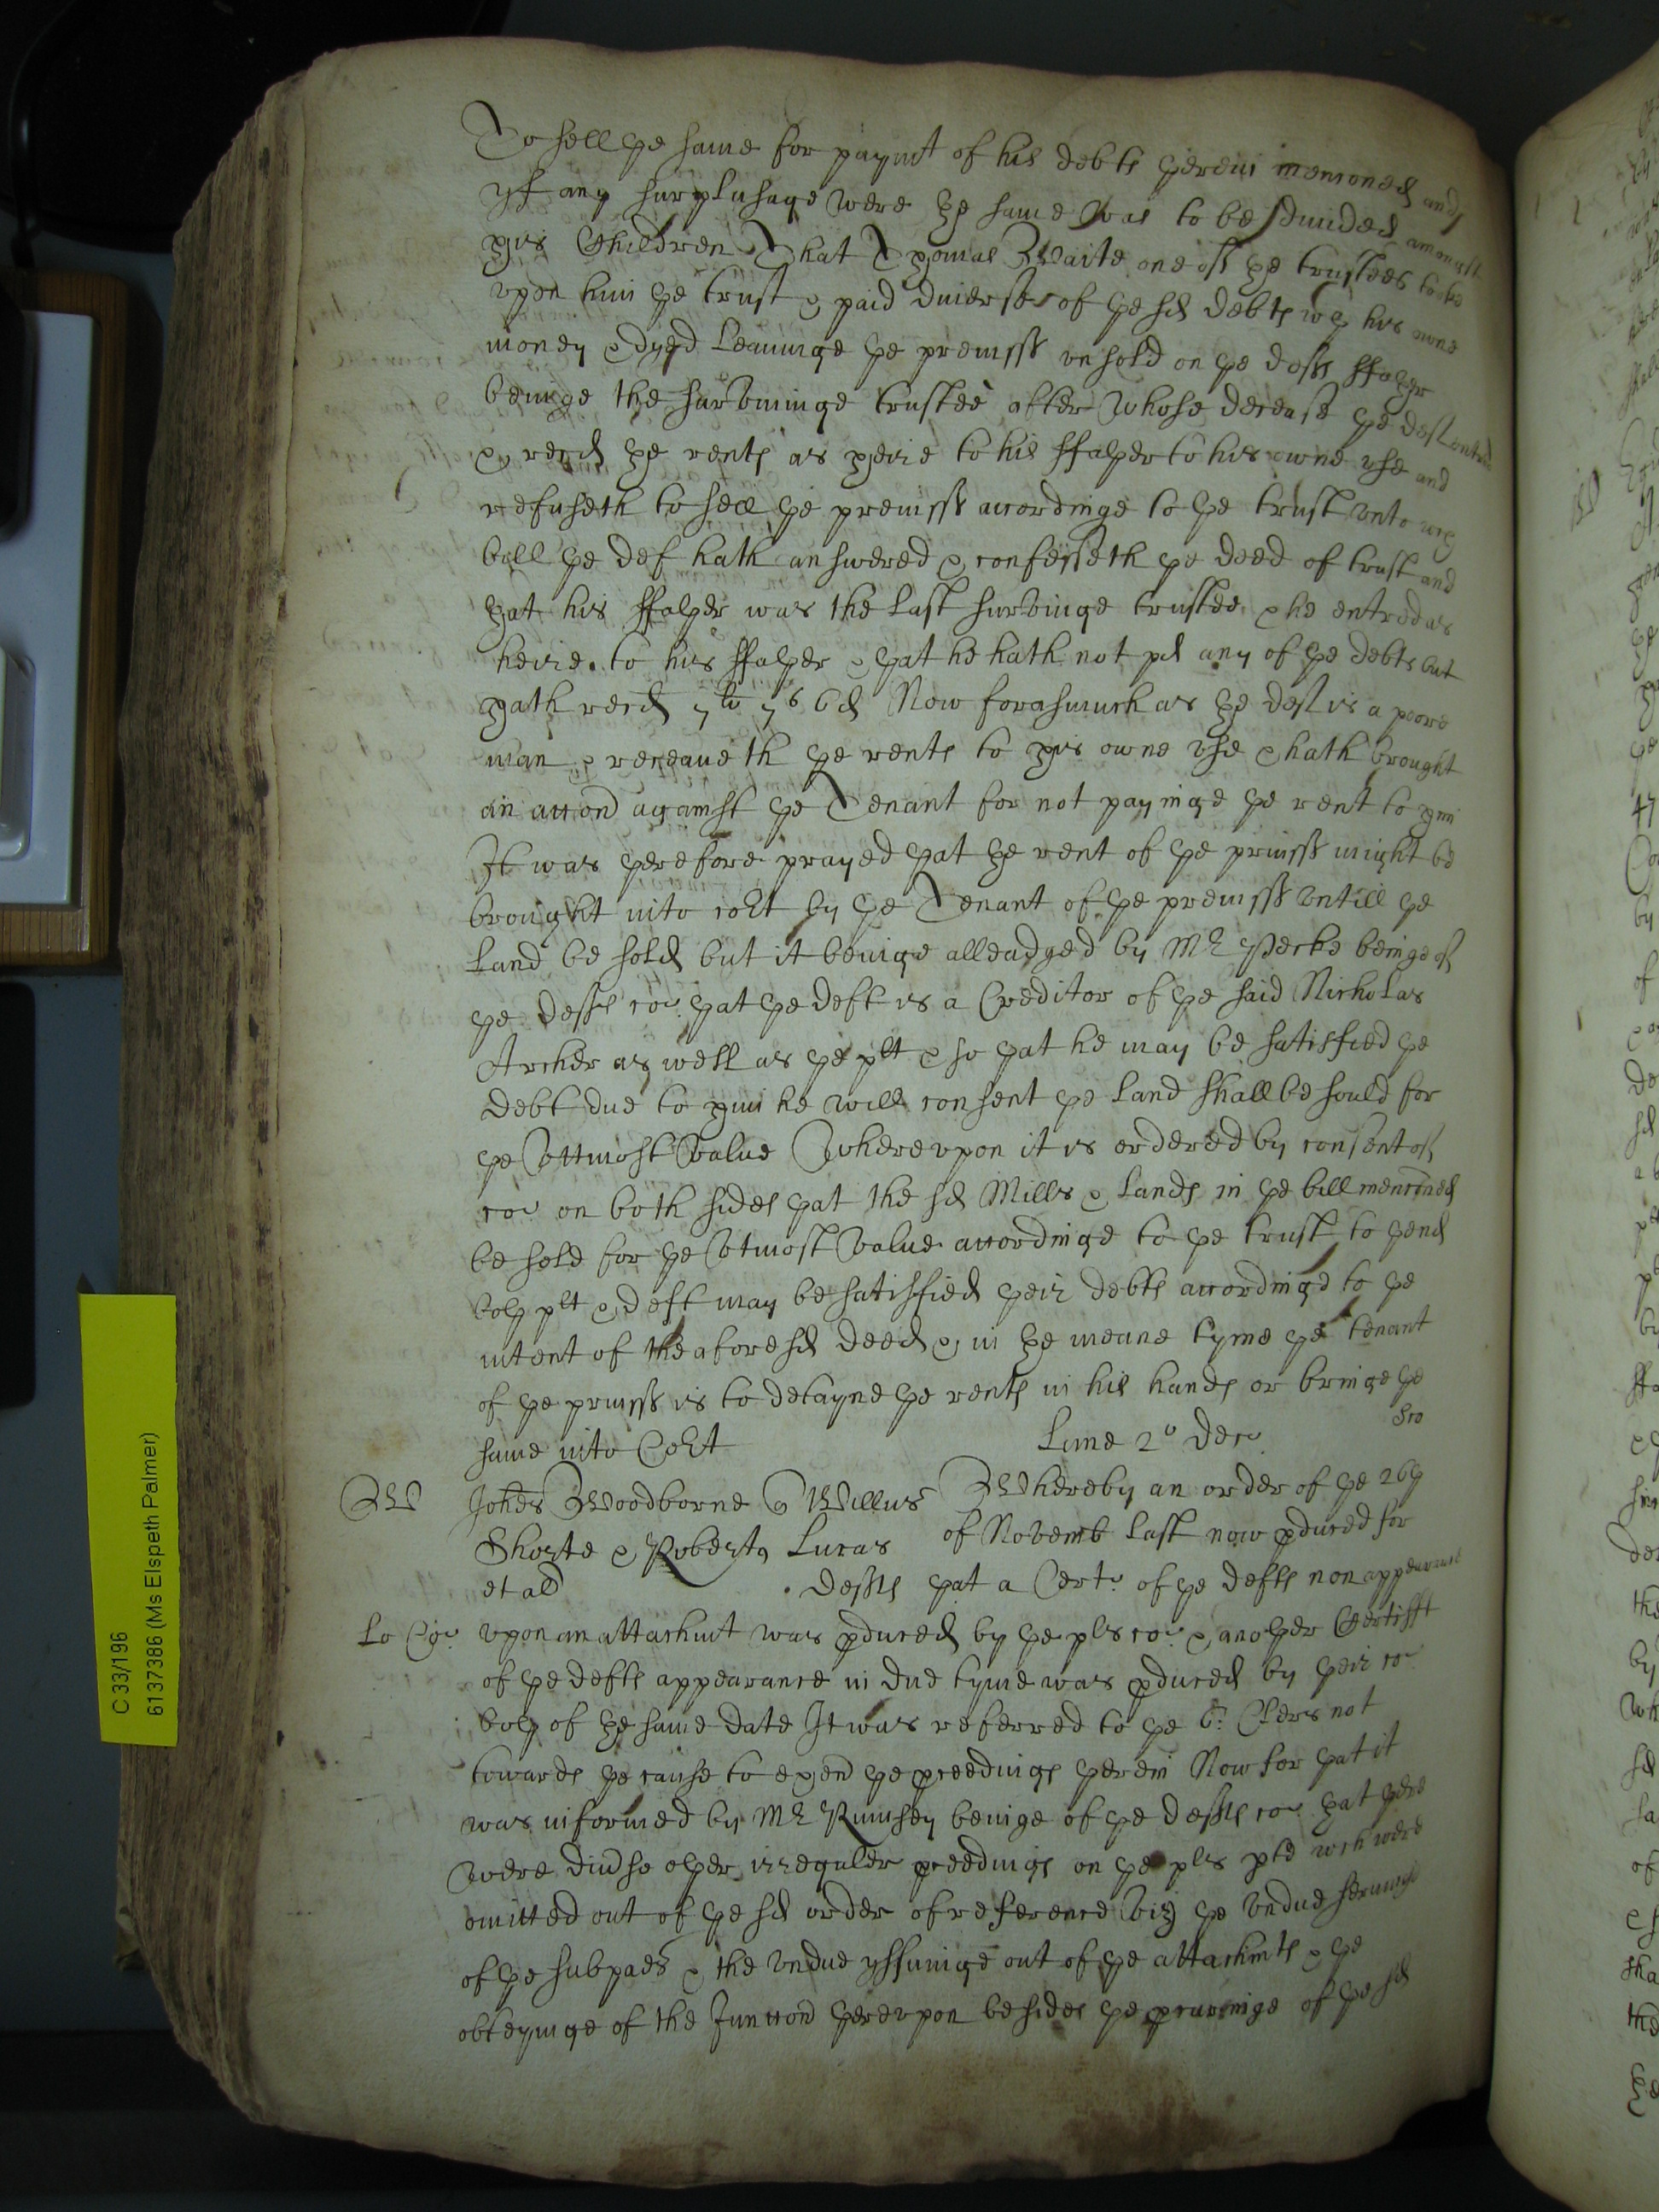 To sell ye same for paymt of his debts therein menconed and
yf any surplusage were the same was to be devided amongst
his Children That Thomas Waite one of the trustees tooke
vpon him the trust & paid diuerse of the sd debts wth his owne
money & dyed Leauinge the premiss vnsold on the defts ffather
beinge the survivinge trustee after whose decease the deft entred
& recd the rents as heire to his ffather to his owne vse and
refuseth to sell the premiss accordinge to the trust vnto wch
bill the def hath answered & confesseth the deed of trust and
that his ffather was the last survivinge trustee & he entred as
heire to his ffather & that he hath not pd any of the debts but
hath recd 7li 7s 6d Now forasmuch as the deft is a poore
man & receaueth the rents to his owne vse & hath brought
an accon against the Tenant for not payinge the rent to him
It was therefore prayed that the rent of the primiss might be
brought into Cort by the Tenant of the premiss vntill the
Land be sold but it beinge alleadged by Mr Pecke beinge of
the defts co: that the deft is a Creditor of the said Nicholas
Archer as well as the plt & so that he may be satisfied the
debt due to him he will consent the Land shall be sould for
the vttmost value Wherevpon it is ordered by consent of
co: on both sides that the sd Mills & Lands in the bill menconed
be sold for the vtmost value accordinge to the trust to thend
both plt & deft may be satisfied their debts accordinge to the
intent of the aforesd deed & in the meane tyme the tenant
of the primiss is to detayne the rents in his hands or bringe the
same into Cort
Lune 2o Dec
Johes Woodborne Willus Whereby an order of the 26th
Shorte & Roberto Lucas of Novemb last now pduced for
et al defts that a Cert. of the defts non appearance
vpon an attachmt was pduced by the plts co: & another Certifft
of the defts appearance in due tyme was pduced by their co:
both of the same date It was referred to the 6: Clers not
towards the cause to exend the pceedings therein Now for that it
was informed by Mr Rumsey beinge of the defts co: that there
were divse other irreguler pceedings on the plts pte wch were
omitted out of the sd order of reference viz the vndue servinge
of the subpaes & the vndue yssuinge out of the attachmts & the
obteyninge of the Junccon therevpon besides the pcuringe of the sd
C 33/196
6137386 (Ms Elspeth Palmer)